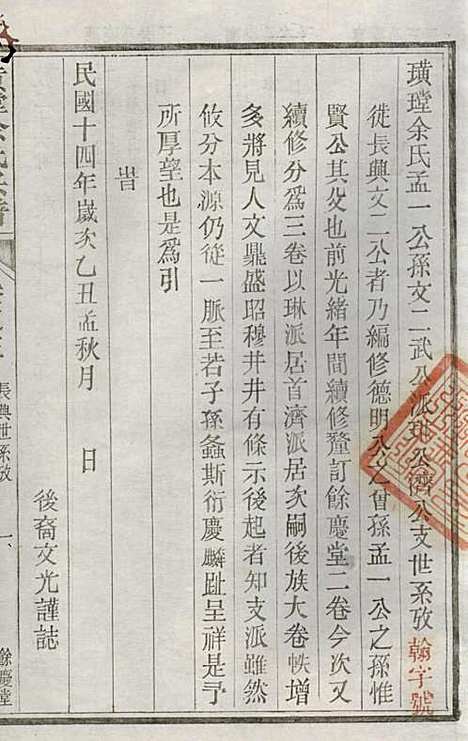 璜瑝余氏孟一公孫文二武公派琳公濟公支世系攷
翰字號
徙長興文二公者乃編修德明公之曾孫孟一公之孫惟
賢公其父也前光緒年間續修釐訂餘慶堂二卷今次又
續修分爲三卷以琳派居首濟派居次嗣後族大卷帙增
多將見人文鼎盛昭穆井井有條示後起者知支派雖然
攸分本源仍從一脈至若子孫螽斯衍慶麟趾呈祥是予
所厚望也是爲引
旹
民國十四年歲次乙丑孟秋月 日
後裔文光謹誌
余氏宗譜
長興世系攷 一 餘慶堂